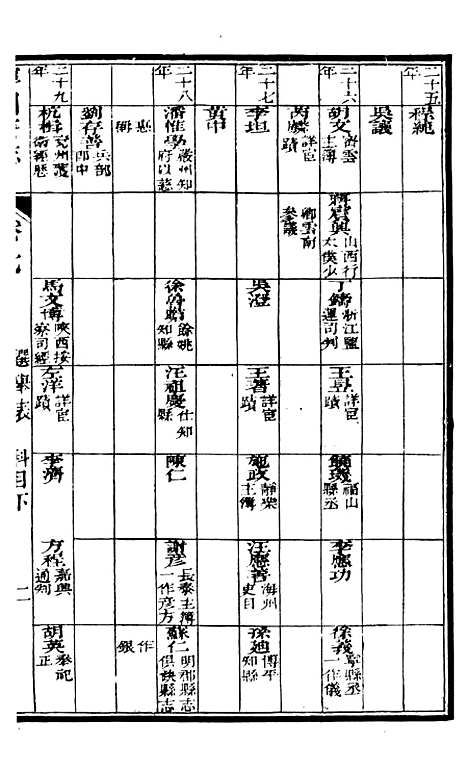 二十五年
程純
吳議
二十六年
胡文 縉雲主簿
耿震興 山西行太僕少卿雲南參議
丁鏞 浙江鹽運司判
王昱 詳宦蹟
福山縣丞
李應功
徐義 寧縣丞一作儀
芮麟 詳宦蹟
二十七年
李坦
吳澄
王著 詳宦蹟
施政 靜樂主簿
汪應善 海州吏目
孫廸 博平知縣
黃中
二十八年
潘惟學 嚴州知府以慈惠稱
徐 餘姚知縣
汪祖慶 仕知縣
陳仁
謝彥 長泰主簿一作彥方
蘇仁 明郡縣志俱缺縣志作銀
劉存善 兵部郎中
二十九年
杭梓 衛經歷
馬文博 陝西按察司經
左洋 詳宦蹟
李濟
方程 嘉興通判
胡英 奉祀正
選舉表 科目下 二